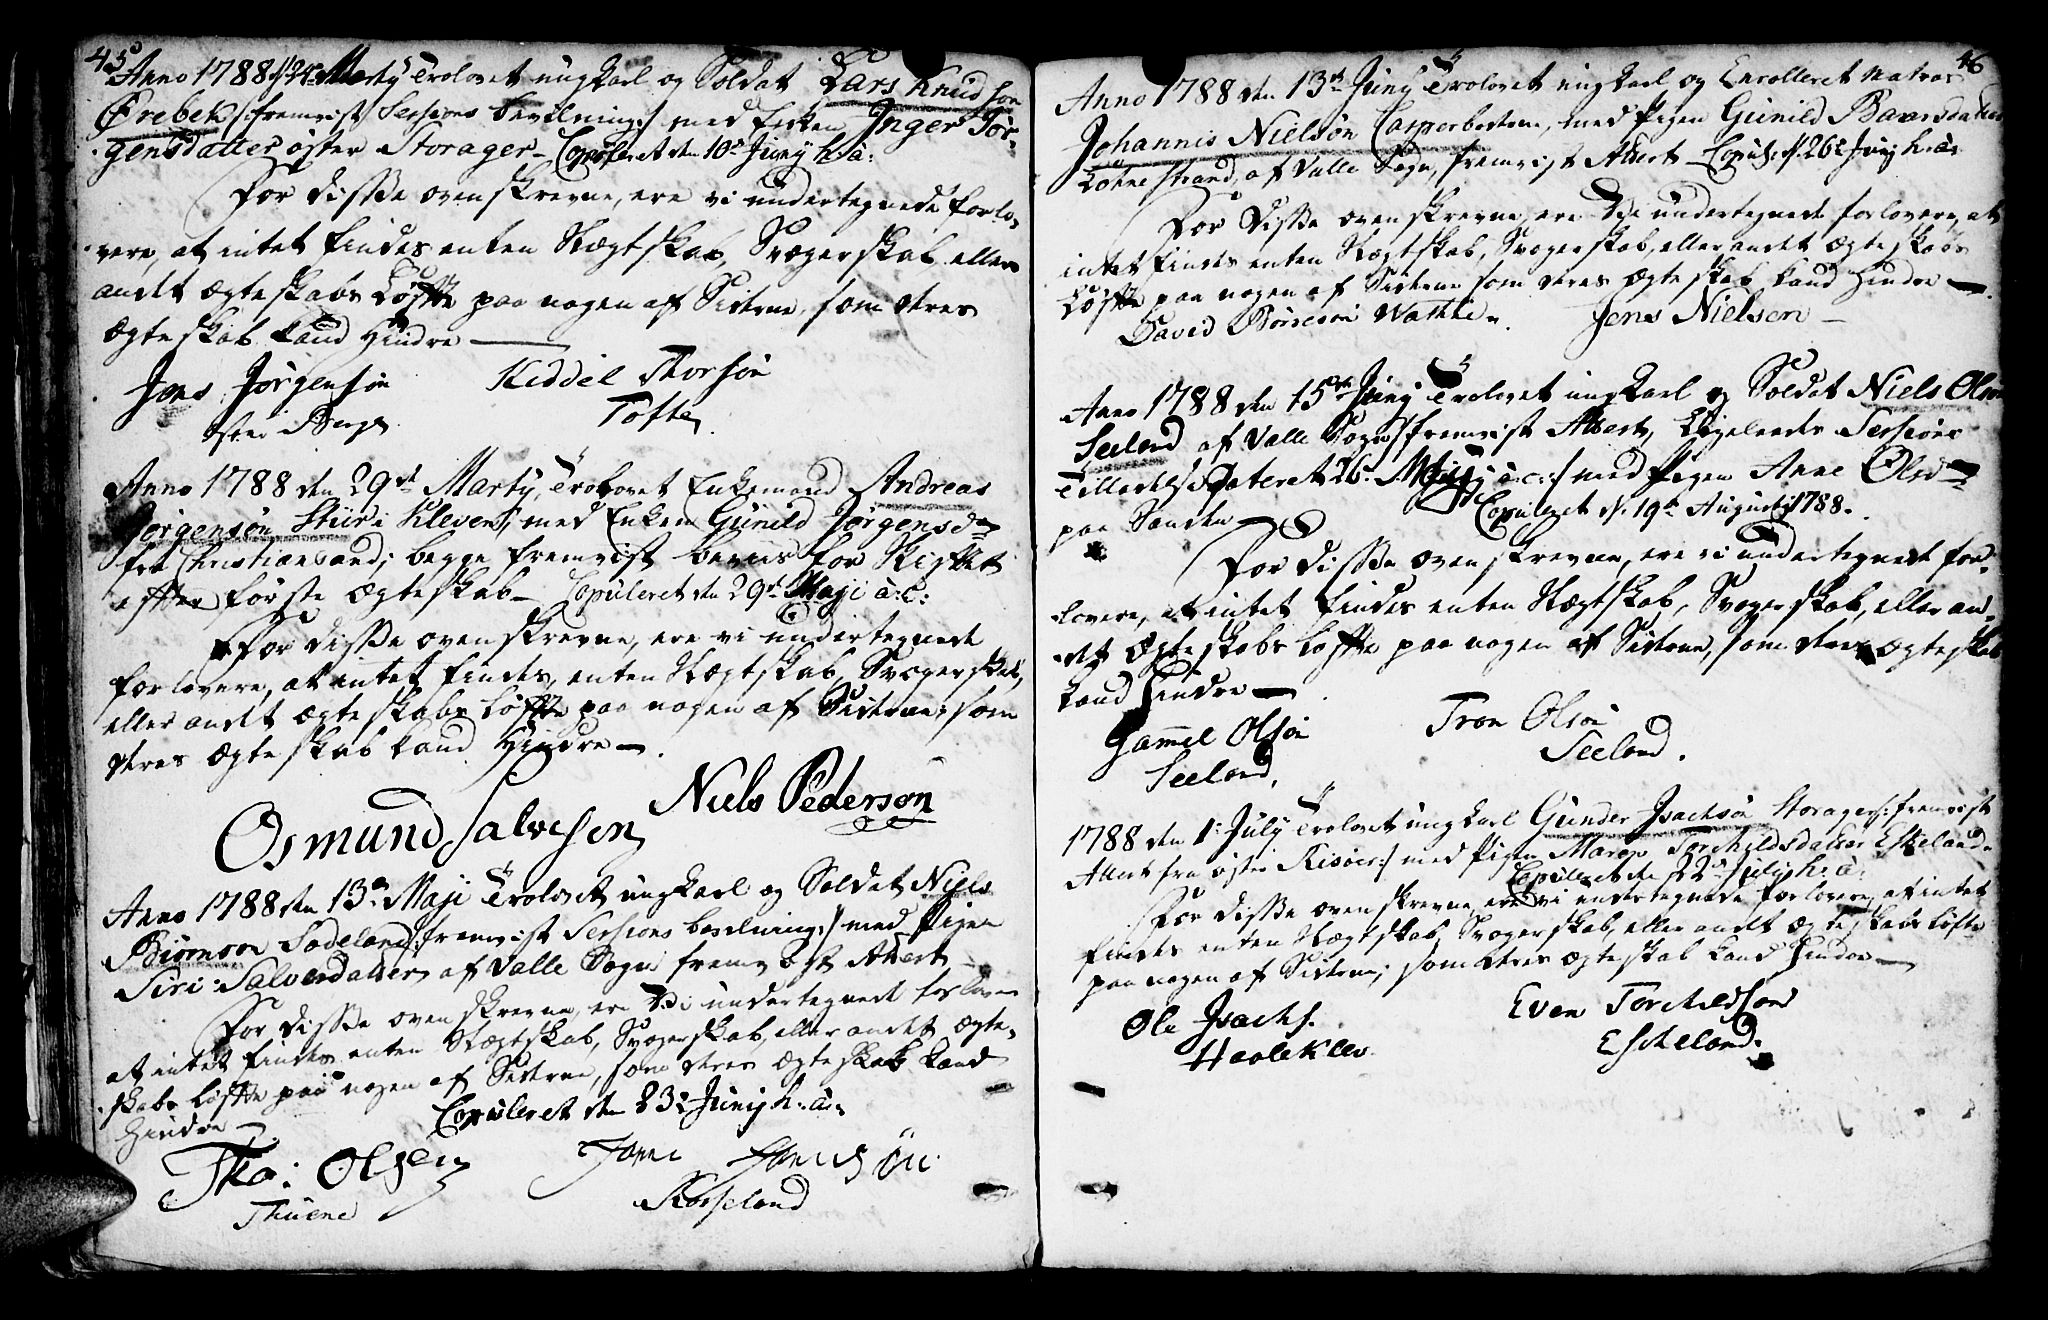 45
Anno 1788 d. 24 Martÿ Trolovet ungkarl og Soldat Lars Knudsøn
Ørebek /: fremvist Sessions bevillning :/ med Enken Inger Jør-
gensdatter øster Storager – Copuleret den 10de Junÿ h: a:
For disse ovenskrevne, ere vi undertegnede forlo-
vere, at intet findes enten Slegtskab, Svogerskab eller
andet Ægteskabs Løffte paa nogen af Siderne, som deres
Ægteskab kand Hindre —
Jens Jørgensøn Kiddel Thorsøn
øster Berge Tofte
Anno 1788 den 29de Martÿ, Trolovet Enkemand Andreas
Jørgensøn Stuer i Kleven, med Enken Gunild Jørgensd–
fra Christiansand; begge fremvist beviis for Skiftet
efter første Ægteskab – Copuleret den 29de Maji a: c:
For disse ovenskrevne, ere vi undertegnede
forlovere, at intet findes, enten Slegtskab, Svogerskab,
eller andet Ægteskabs Løffte paa nogen af Siderne; som
deres Ægteskab kand Hindre —
Osmund Salvesen Niels Pedersøn
Anno 1788 den 13de Maji Trolovet ungkarl og Soldat Niels
Biørnson Sodeland /: fremvist Sessions bevilning :/ med Pigen
Siri Salvesdatter af Valle Sogn fremvist Attest –
For disse ovenskrevne, ere Vi undertegnede forlovere
at intet findes enten Slegtskab, Svogerskab, eller andet Ægte-
skabs Løffte paa nogen af Siderne, som deres Ægteskab kand
Hindre — Copuleret den 23de Junij h: a:
Tho: Olsen Jons Jonsøn
Thuene Korseland
46
Anno 1788 den 13de Junÿ Trolovet ungkarl og Enrolleret Matros
Johannis Nielsøn Casperbostene, med Pigen Gunild Baarsdatter
Løhnestrand, af Valle Sogn, fremvist Attest – Copul: d. 26de Junij h: a:
For Disse ovenskrevne, ere Vi undertegnede forlovere, at
intet findes enten Slegtskab, Svogerskab, eller andet Ægteskabs
Løffte paa nogen af Siderne som deres Ægteskab kand Hindre —
David Børresøn Wathne. Jens Nielsen –
Anno 1788 den 15de Junij Trolovet ungkarl og Soldat Niels Olsøn
Seeland af Valle Sogn /: fremvist Attest, Ligeleedes Sessions
Tilladelse Dateret 26. a: c: :/ med Pigen Anne Olsd–
paa Sanden — Copuleret d. 19de Augusti 1788.
For disse ovenskrevne, ere vi undertegnede for-
lovere, at intet findes enten Slegtskab, Svogerskab, eller an-
det Ægteskabs Løffte paa nogen af Siderne, som deres Ægteskab
kand Hindre —
Gammel Olsøn Tron Olsøn
Seeland, Seeland.
1788 den 1: July Trolovet ungkarl Gunder Isachsøn Storager /: fremvist
Attest fra øster Risøer :/ med Pigen Maren Torchildsdatter Eskeland –
Copuleret den 22de Julij h: a:
For disse ovenskrevne, ere vi undertegnede forlovere, at intet
findes enten Slegtskab, Svogerskab, eller andet Ægteskabs Løfte
paa nogen af Siderne; som deres Ægteskab kand Hindre —
Ole Isachs. Even Torchildsøn
Haaleklev. Escheland.